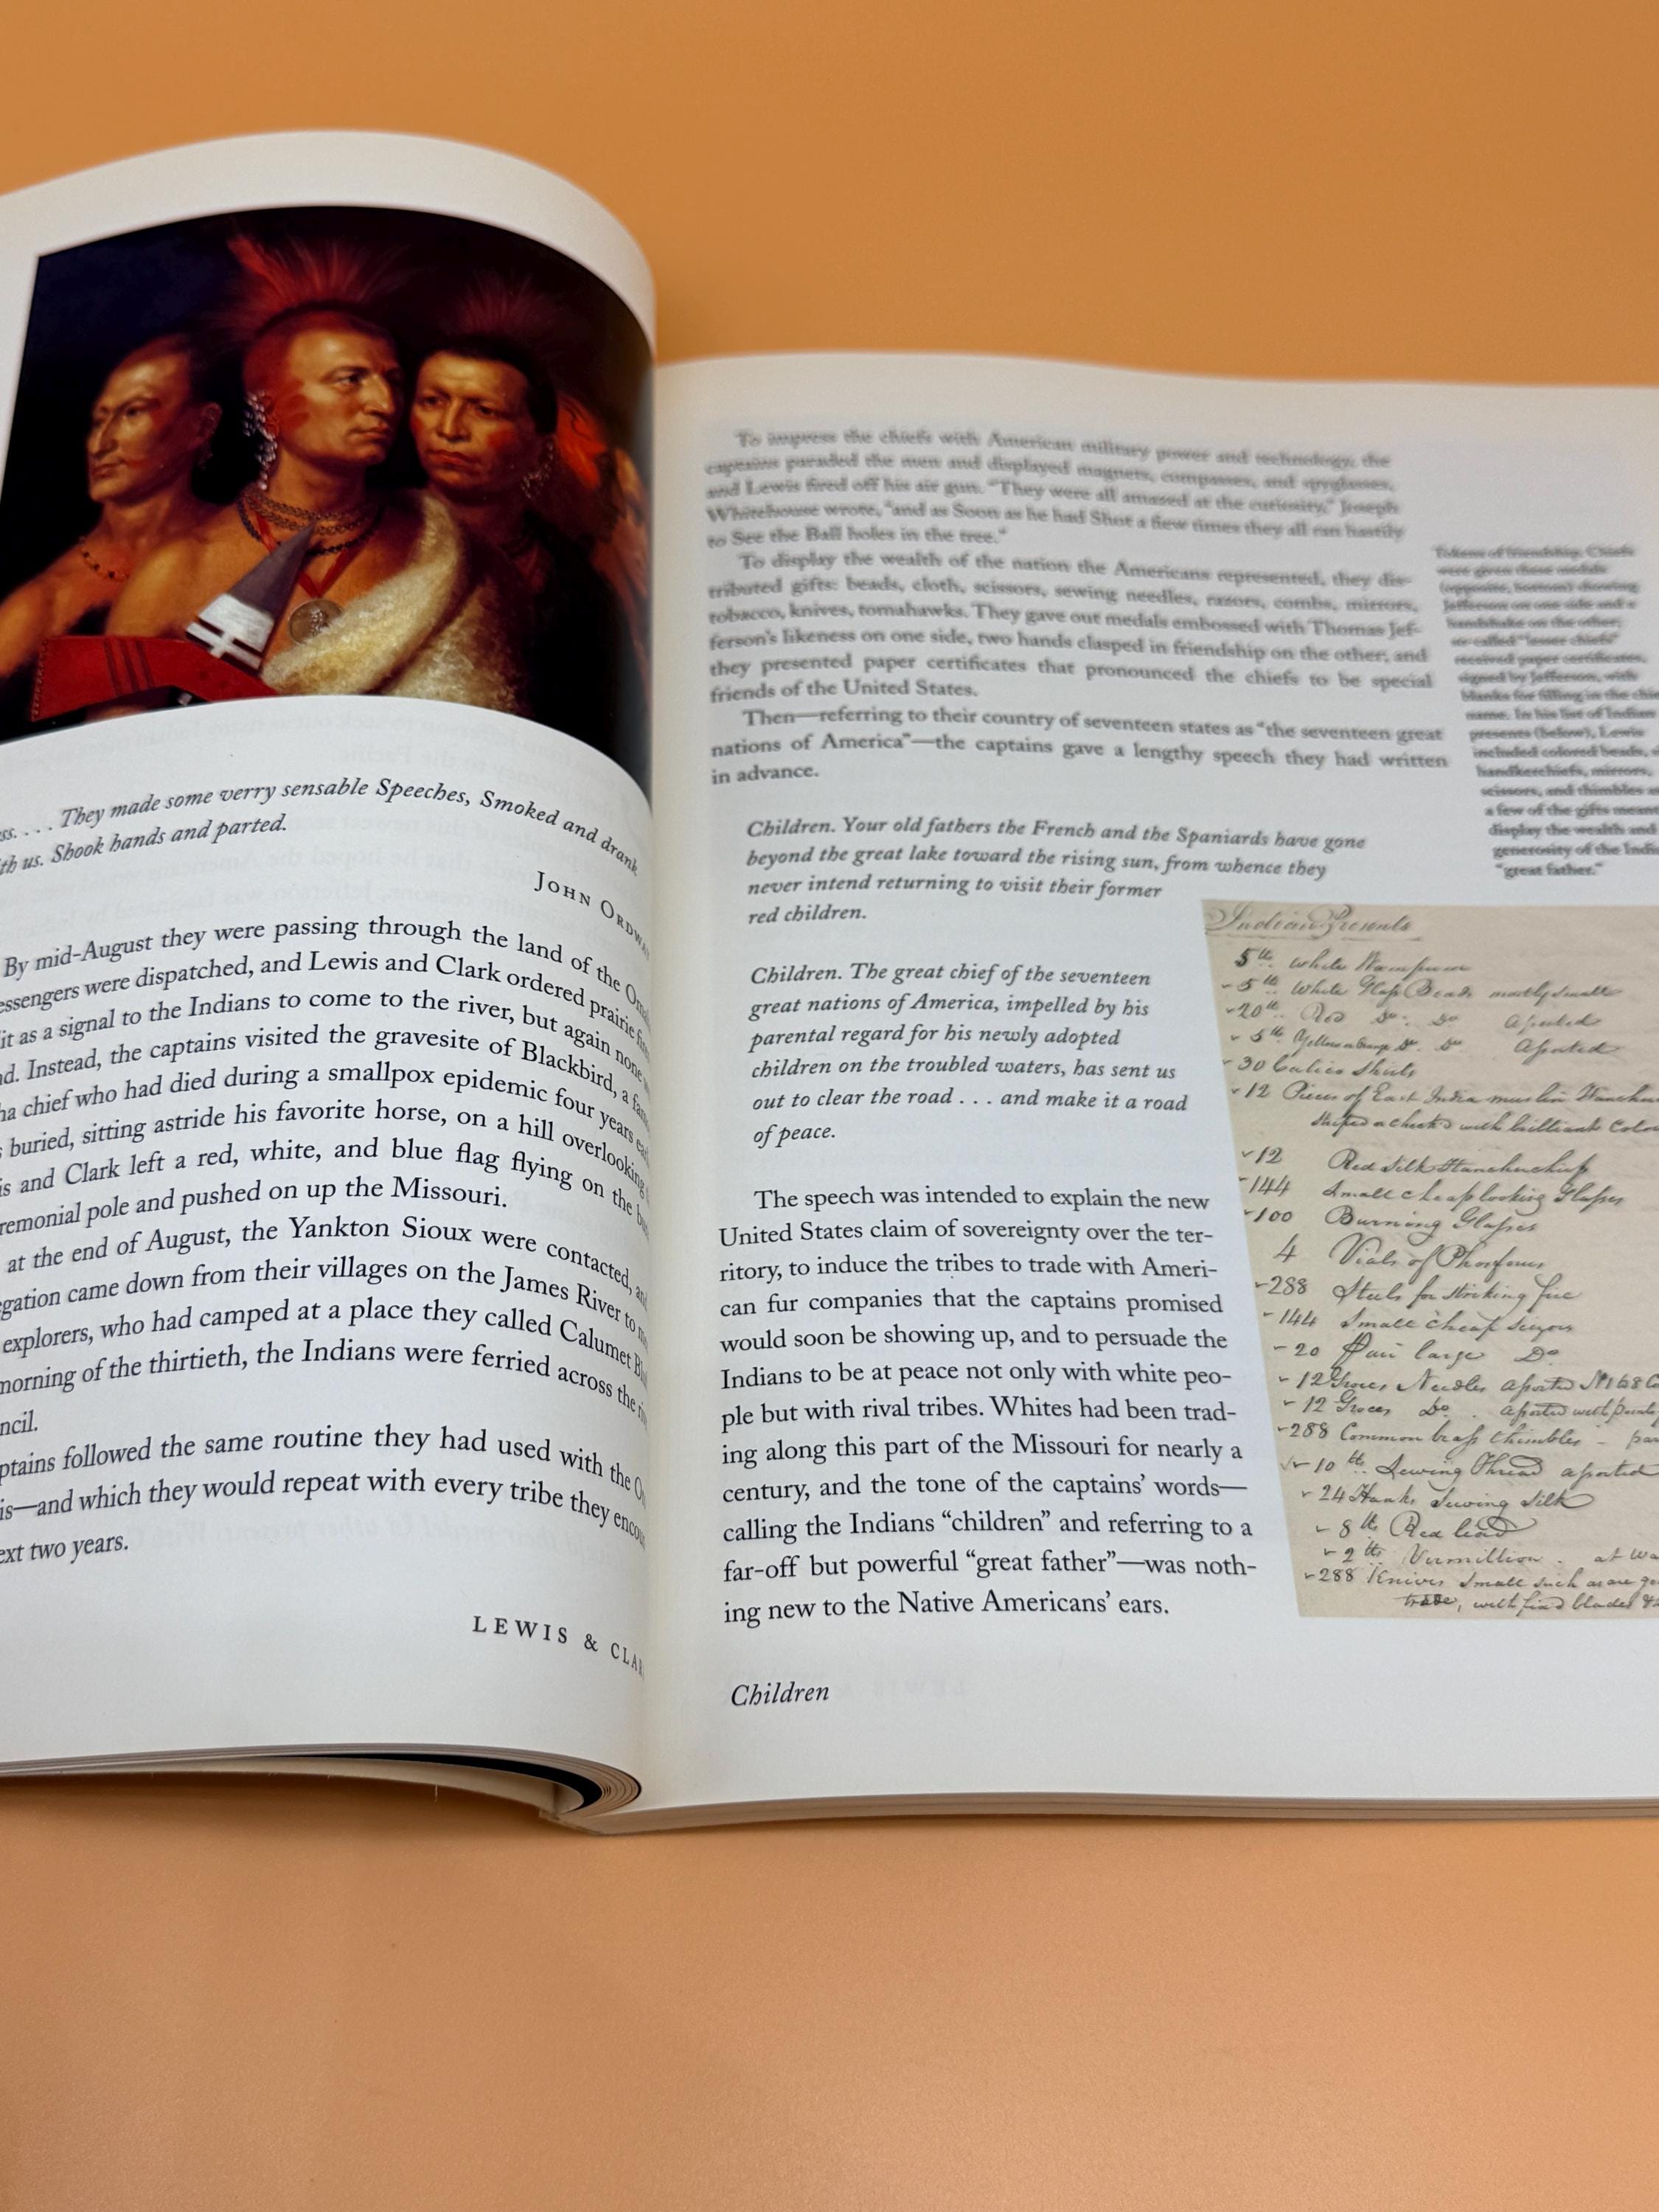 ss. . . . They made some verry sensable Speeches, Smoked and drank
th us. Shook hands and parted.
JOHN ORDWA
By mid-August they were passing through the land of the
essengers were dispatched, and Lewis and Clark ordered prairie
it as a signal to the Indians to come to the river, but again none
nd. Instead, the captains visited the gravesite of Blackbird, a
ha chief who had died during a smallpox epidemic four years
s buried, sitting astride his favorite horse, on a hill overlooking
is and Clark left a red, white, and blue flag flying on the
remonial pole and pushed on up the Missouri.
at the end of August, the Yankton Sioux were contacted,
gation came down from their villages on the James River to
explorers, who had camped at a place they called Calumet
morning of the thirtieth, the Indians were ferried across the
ncil.
ptains followed the same routine they had used with the
is—and which they would repeat with every tribe they
ext two years.
LEWIS & CLAR
To impress the chiefs with American military power and technology, the
captains paraded the men and displayed magnets, compasses, and spyglasses,
and Lewis fired off his air gun. "They were all amazed at the curiosity," Joseph
Whitehouse wrote, "and as Soon as he had Shot a fiew times they all ran hastily
to See the Ball holes in the tree."
To display the wealth of the nation the Americans represented, they dis-
tributed gifts: beads, cloth, scissors, sewing needles, razors, combs, mirrors,
tobacco, knives, tomahawks. They gave out medals embossed with Thomas Jef-
ferson's likeness on one side, two hands clasped in friendship on the other, and
they presented paper certificates that pronounced the chiefs to be special
friends of the United States.
Then—referring to their country of seventeen states as "the seventeen great
nations of America"—the captains gave a lengthy speech they had written
in advance.
Children. Your old fathers the French and the Spaniards have gone
beyond the great lake toward the rising sun, from whence they
never intend returning to visit their former
red children.
Children. The great chief of the seventeen
great nations of America, impelled by his
parental regard for his newly adopted
children on the troubled waters, has sent us
out to clear the road . . . and make it a road
of peace.
The speech was intended to explain the new
United States claim of sovereignty over the ter-
ritory, to induce the tribes to trade with Ameri-
can fur companies that the captains promised
would soon be showing up, and to persuade the
Indians to be at peace not only with white peo-
ple but with rival tribes. Whites had been trad-
ing along this part of the Missouri for nearly a
century, and the tone of the captains' words—
calling the Indians "children" and referring to a
far-off but powerful "great father"—was noth-
ing new to the Native Americans' ears.
Children
Tokens of friendship. Chiefs
were given these medals
(opposite, bottom) showing
Jefferson on one side and a
handshake on the other;
so-called "lesser chiefs"
received paper certificates,
signed by Jefferson, with
blanks for filling in the chie
name. In his list of Indian
presents (below), Lewis
included colored beads,
handkerchiefs, mirrors,
scissors, and thimbles
a few of the gifts meant
display the wealth and
generosity of the India
"great father."
Indian Presents
5 lb White Wampum
5 lb White Glass Beads mostly small
20 lb Red Do. Do assorted
5 lb Yellow or Orange Do. Do assorted
30 Calico Shirts
12 Pieces of East India muslin Hanckr
striped or check'd with brilliant Colou
12 Red Silk Hanckerchiefs
144 Small cheap looking Glasses
100 Burning Glasses
4 Vials of Phosforus
288 Steels for striking fire
144 Small cheap Scizors
20 Pair large Do
12 Groces Needles assorted No 1 to 8
12 Groces Do. assorted with points
288 Common brass thimbles
10 lb Sewing Thread assorted
24 Hanks Sewing Silk
8 lb Red lead
2 lb Vermillion. at
288 Knives Small such as are
trade, with fix'd blades